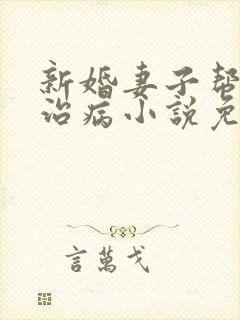 新婚妻子帮
治病小說免
言萬戈